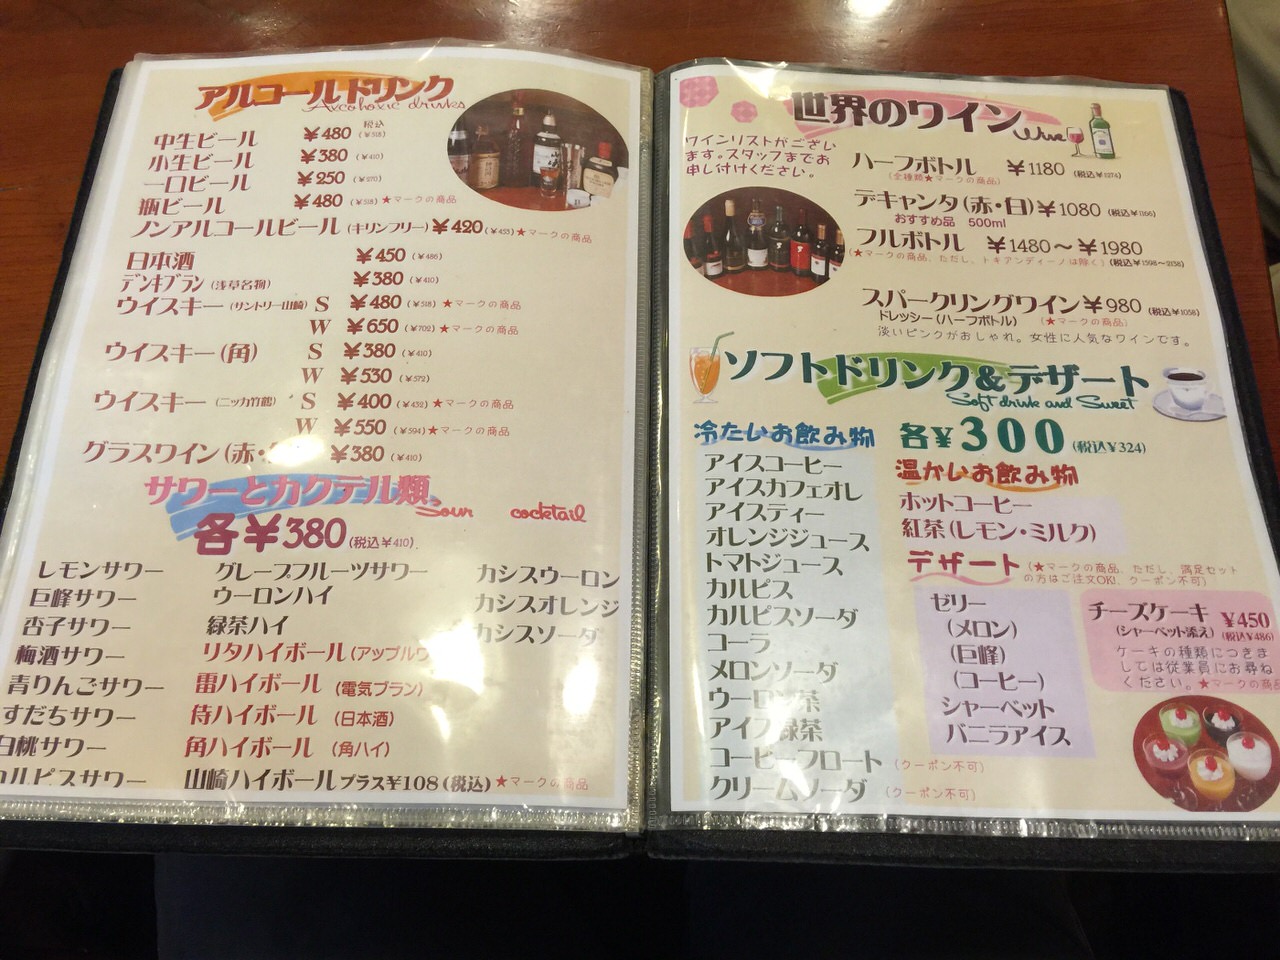 アルコールドリンク
Alcoholic drinks
税込
中生ビール ¥480 (¥518)
小生ビール ¥380 (¥410)
一口ビール ¥250 (¥270)
瓶ビール ¥480 (¥518) ★マークの商品
ノンアルコールビール (キリンフリー) ¥420 (¥453) ★マークの商品
日本酒 ¥450 (¥486)
デンキブラン (浅草名物) ¥380 (¥410)
ウイスキー (サントリー山崎) S ¥480 (¥518) ★マークの商品
W ¥650 (¥702) ★マークの商品
ウイスキー (角) S ¥380 (¥410)
W ¥530 (¥572)
ウイスキー (ニッカ竹鶴) S ¥400 (¥432) ★マークの商品
W ¥550 (¥594) ★マークの商品
グラスワイン (赤・ ¥380 (¥410)
サワーとカクテル類
Sour cocktail
各¥380 (税込¥410)
レモンサワー グレープフルーツサワー カシスウーロン
巨峰サワー ウーロンハイ カシスオレンジ
杏子サワー 緑茶ハイ カシスソーダ
梅酒サワー リタハイボール (アップルワ
青りんごサワー 雷ハイボール (電気ブラン)
すだちサワー 侍ハイボール (日本酒)
白桃サワー 角ハイボール (角ハイ)
カルピスサワー 山崎ハイボール プラス¥108 (税込) ★マークの商品
世界のワイン
Wine
ワインリストがござい
ます。スタッフまでお
申し付けください。
ハーフボトル ¥1180 (税込¥1274)
(全種類★マークの商品)
デキャンタ (赤・白) ¥1080 (税込¥1166)
おすすめ品 500ml
フルボトル ¥1480〜¥1980
(★マークの商品、ただし、トキアンディーノは除く) (税込¥1598〜2138)
スパークリングワイン ¥980 (税込¥1058)
ドレッシー (ハーフボトル) (★マークの商品)
淡いピンクがおしゃれ。女性に人気なワインです。
ソフトドリンク&デザート
Soft drink and Sweet
冷たいお飲み物 各¥300 (税込¥324)
アイスコーヒー
アイスカフェオレ
アイスティー
オレンジジュース
トマトジュース
カルピス
カルピスソーダ
コーラ
メロンソーダ
ウーロン茶
アイス緑茶
コーヒーフロート (クーポン不可)
クリームソーダ (クーポン不可)
温かいお飲み物
ホットコーヒー
紅茶 (レモン・ミルク)
デザート (★マークの商品、ただし、満足セット
の方はご注文OK!、クーポン不可)
ゼリー
(メロン)
(巨峰)
(コーヒー)
シャーベット
バニラアイス
チーズケーキ ¥450
(シャーベット添え) (税込¥486)
ケーキの種類につきま
しては従業員にお尋ね
ください。★マークの商品